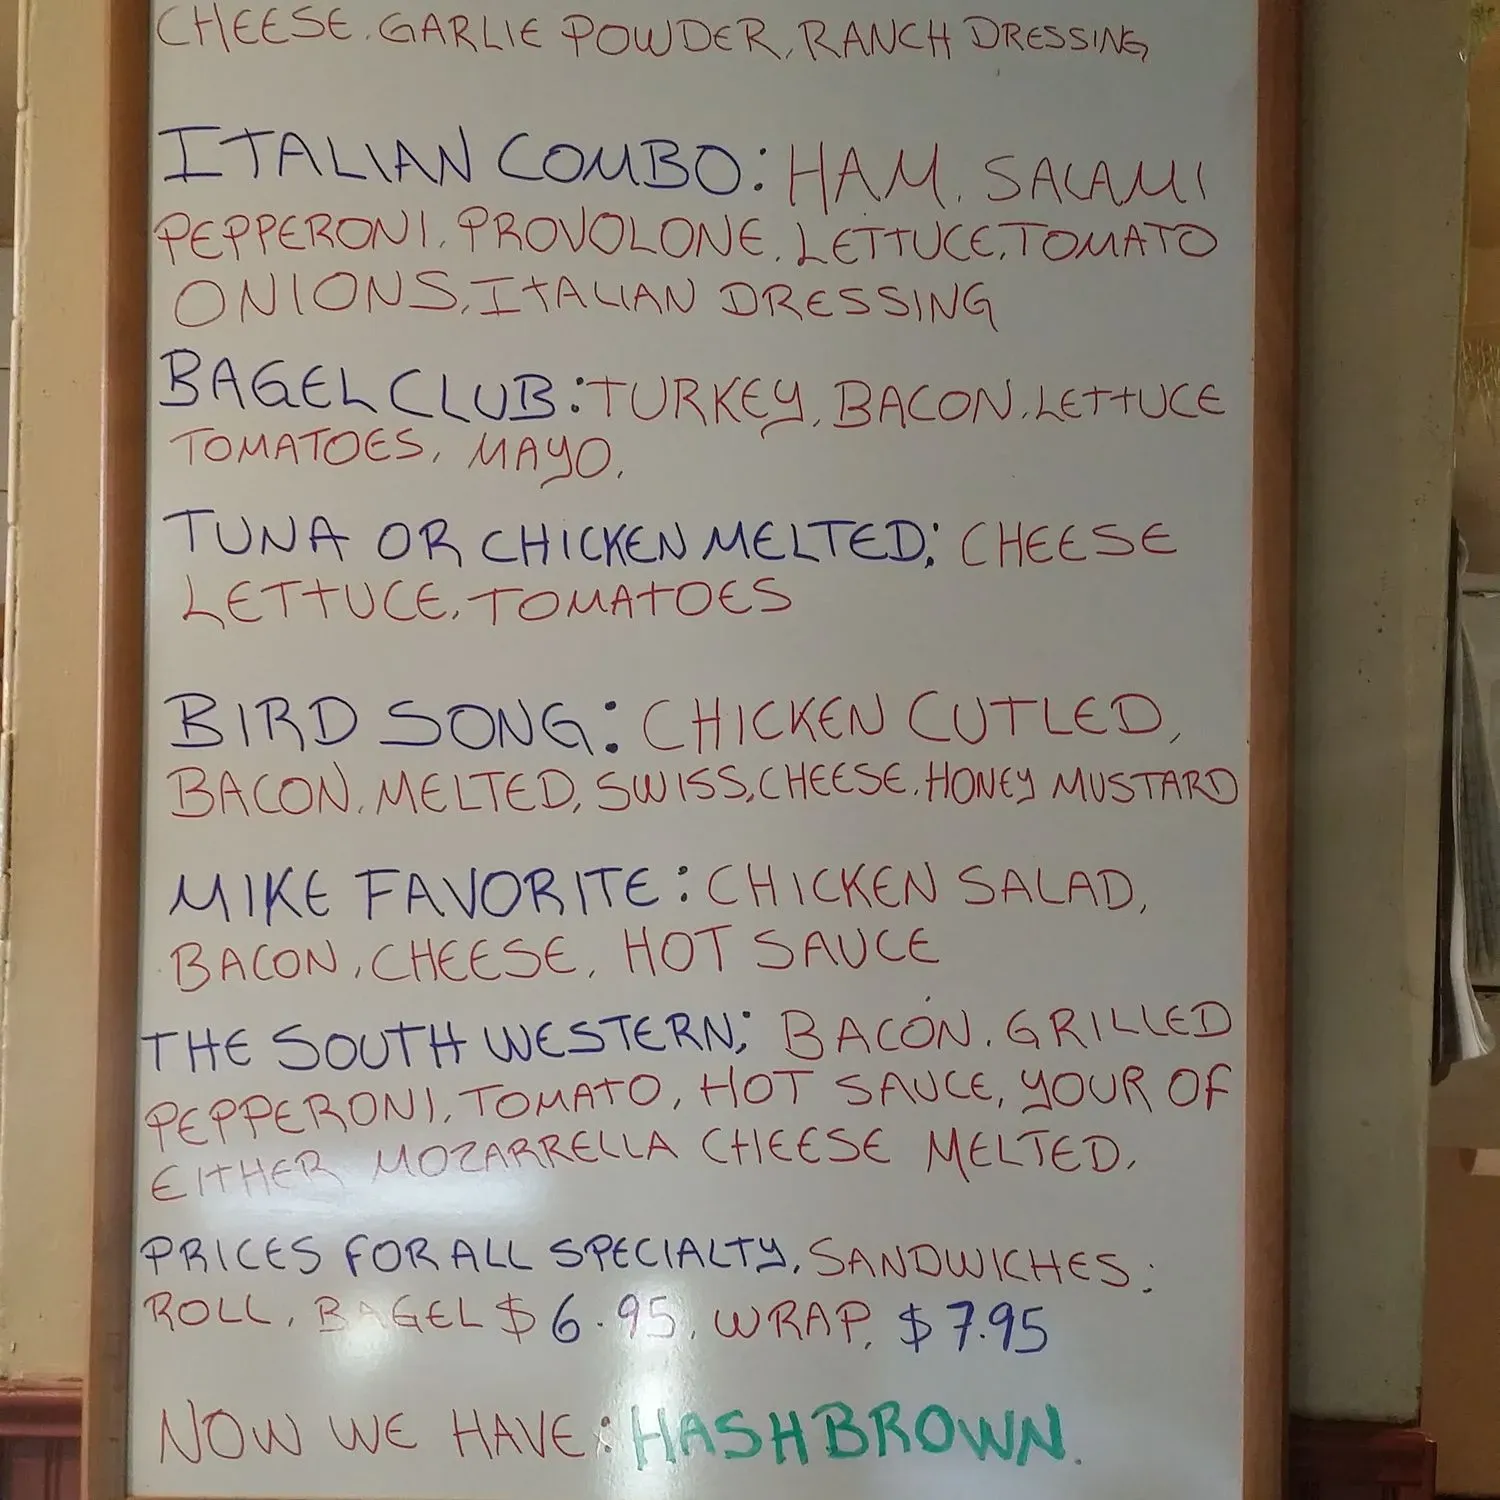 CHEESE. GARLIE POWDER, RANCH DRESSING
ITALIAN COMBO: HAM, SALAMI
PEPPERONI, PROVOLONE, LETTUCE, TOMATO
ONIONS, ITALIAN DRESSING
BAGEL CLUB: TURKEY, BACON, LETTUCE
TOMATOES, MAYO.
TUNA OR CHICKEN MELTED: CHEESE
LETTUCE, TOMATOES
BIRD SONG: CHICKEN CUTLED,
BACON, MELTED, SWISS, CHEESE, HONEY MUSTARD
MIKE FAVORITE: CHICKEN SALAD,
BACON, CHEESE, HOT SAUCE
THE SOUTH WESTERN; BACON, GRILLED
PEPPERONI, TOMATO, HOT SAUCE, YOUR OF
EITHER MOZARRELLA CHEESE MELTED.
PRICES FOR ALL SPECIALTY, SANDWICHES:
ROLL, BAGEL $6.95, WRAP, $7.95
NOW WE HAVE: HASHBROWN.